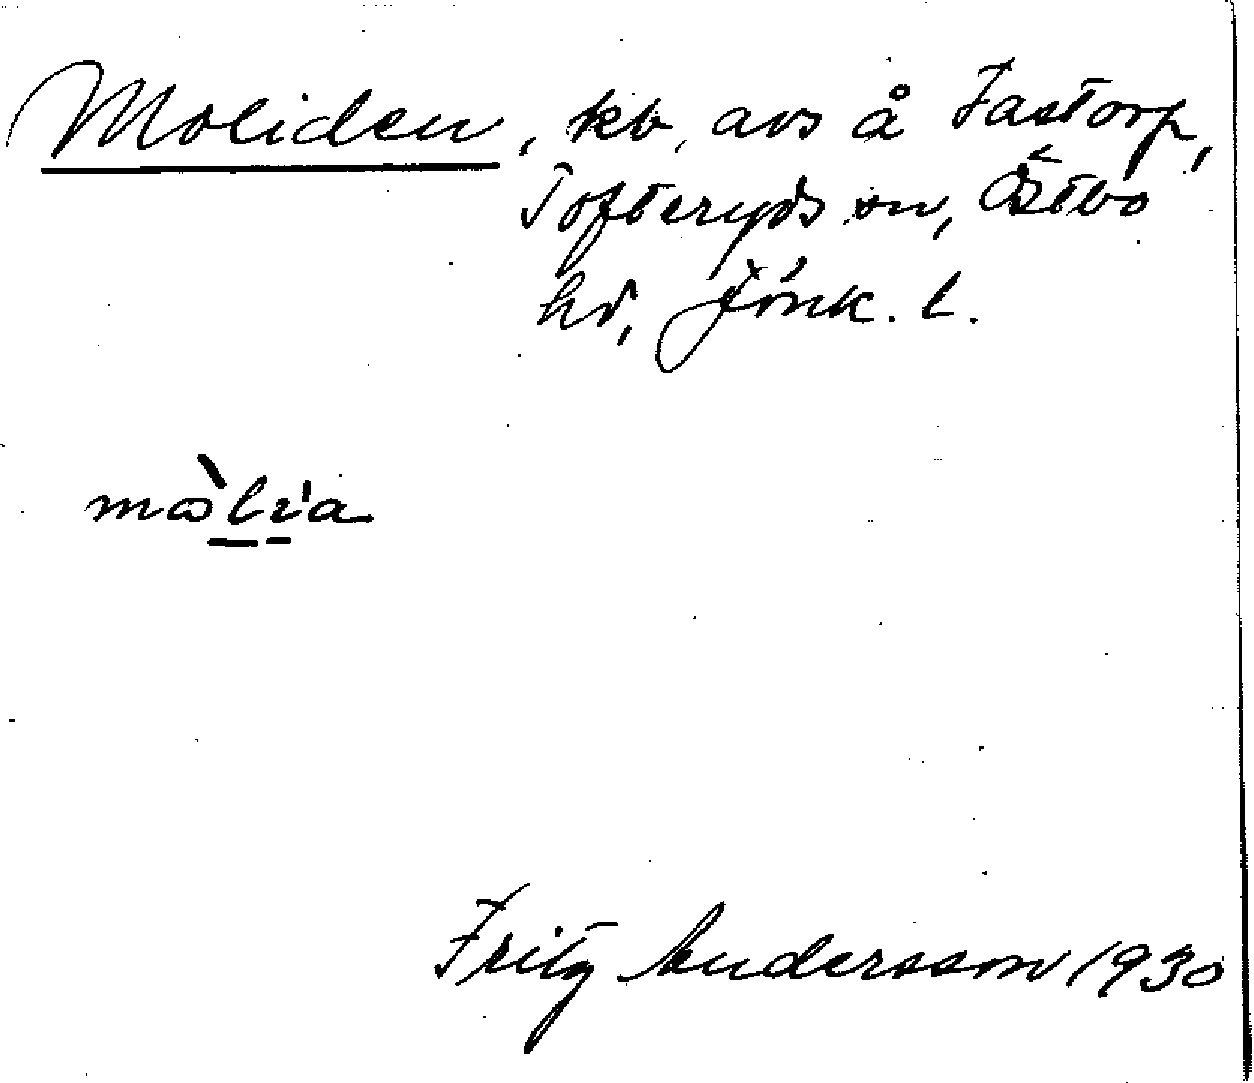 Moliden, kb, avs å Fastorp,
Tofteryds sn, Östbo
hd, Jönk. l.
mòlìa
Fritz Andersson 1930